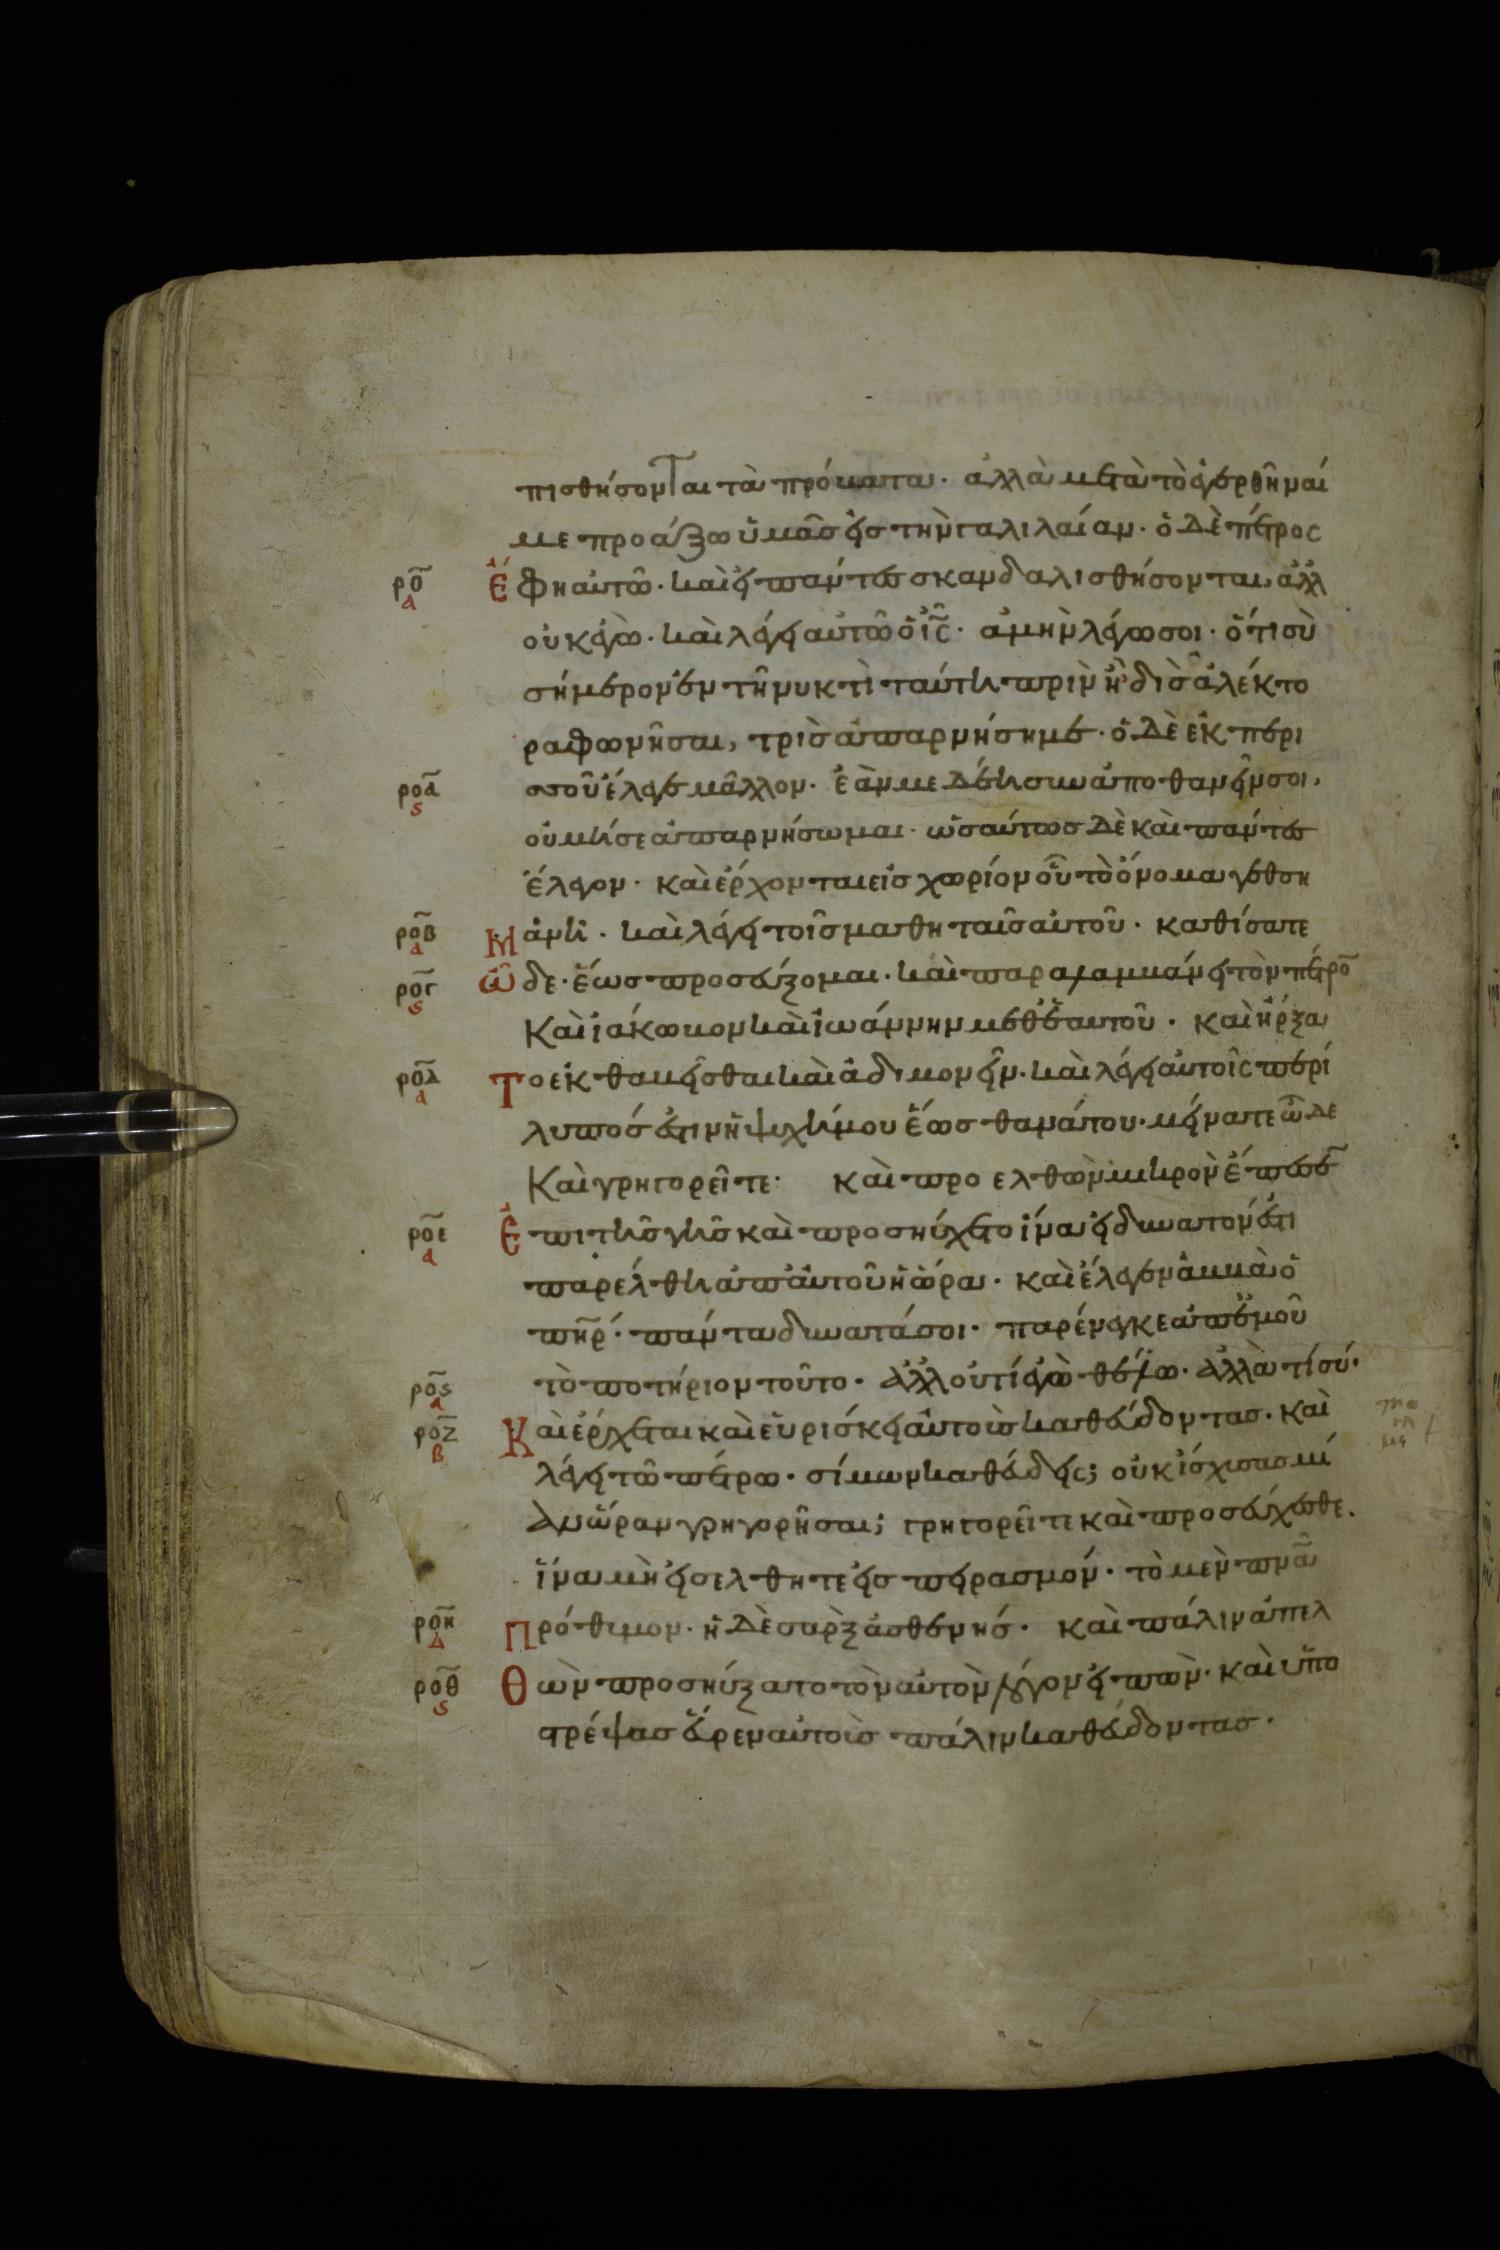 πισθήσονται τὰ πρόβατα· ἀλλὰ μετὰ τὸ ἐγερθῆναί
με προάξω ὑμᾶς εἰς τὴν γαλιλαίαν· ὁ δὲ πέτρος
ρο̅ α Ἔφη αὐτῶ· καὶ εἰ πάντες σκανδαλισθήσονται, ἀλλ
οὐκ ἐγὼ· καὶ λέγει αὐτῶ ὁ ι̅ς̅· ἀμὴν λέγω σοι· ὅτι σὺ
σήμερον ἐν τῆ νυκτὶ ταύτη πρὶν ἢ δὶς ἀλέκτο
ρα φωνῆσαι, τρὶς ἀπαρνήση με· ὁ δὲ ἐκ περι
ροα̅ ς σσοῦ ἔλεγε μᾶλλον· ἐάν με δέη συναποθανεῖν σοι,
οὐ μή σε ἀπαρνήσωμαι· ὡσαύτως δὲ καὶ πάντες
ἔλεγον· καὶ ἔρχονται εἰς χωρίον οὗ τὸ ὄνομα γεθση
ροβ̅ α Μανῆ· καὶ λέγει τοῖς μαθηταῖς αὐτοῦ· καθίσατε
ρογ̅ ς Ὧδε· ἕως προσεύξομαι· καὶ παραλαμβάνει τὸν πέτρο̅
καὶ ἰάκωβον καὶ ἰωάννην μεθ' ἑαυτοῦ· καὶ ἤρξα
ροδ̅ α Το ἐκθαμβεῖσθαι καὶ ἀδιμονεῖν· καὶ λέγει αὐτοῖς περί
λυπός ἐστιν ἡ ψυχή μου ἕως θανάτου· μείνατε ὧδε
καὶ γρηγορεῖτε· καὶ προελθὼν μικρὸν ἔπεσε̅
ροε̅ α Ἐπι τῆς γῆς καὶ προσηύχετο ἵνα εἰ δυνατόν ἐστι
παρέλθη ἀπ' αὐτοῦ ἡ ὥρα· καὶ ἔλεγεν ἀββὰ ὁ
πη̅ρ· πάντα δυνατά σοι· παρένεγκε ἀπ' ἐμοῦ
ρος̅ α τὸ ποτήριον τοῦτο· ἀλλ' οὐ τί ἐγὼ θέλω· ἀλλὰ τί σύ·
ροζ̅ β Καὶ ἔρχεται καὶ εὑρίσκει αὐτοὺς καθεύδοντας· καὶ
λέγει τῶ πέτρω· σίμων καθεύδεις; οὐκ ἴσχυσας μί
αν ὥραν γρηγορῆσαι; γρηγορεῖτε καὶ προσεύχεσθε.
ἵνα μὴ εἰσελθητε εἰς πειρασμόν· τὸ μὲν πν̅α
ροη̅ δ Πρόθυμον· ἡ δὲ σαρὲξ ἀσθενής· καὶ πάλιν ἀπελ
ροθ̅ ς Θὼν προσηύξατο τὸν αὐτὸν λόγον εἰπών· καὶ ὑπο
στρέψας εὗρεν αὐτοὺς πάλιν καθεύδοντας·